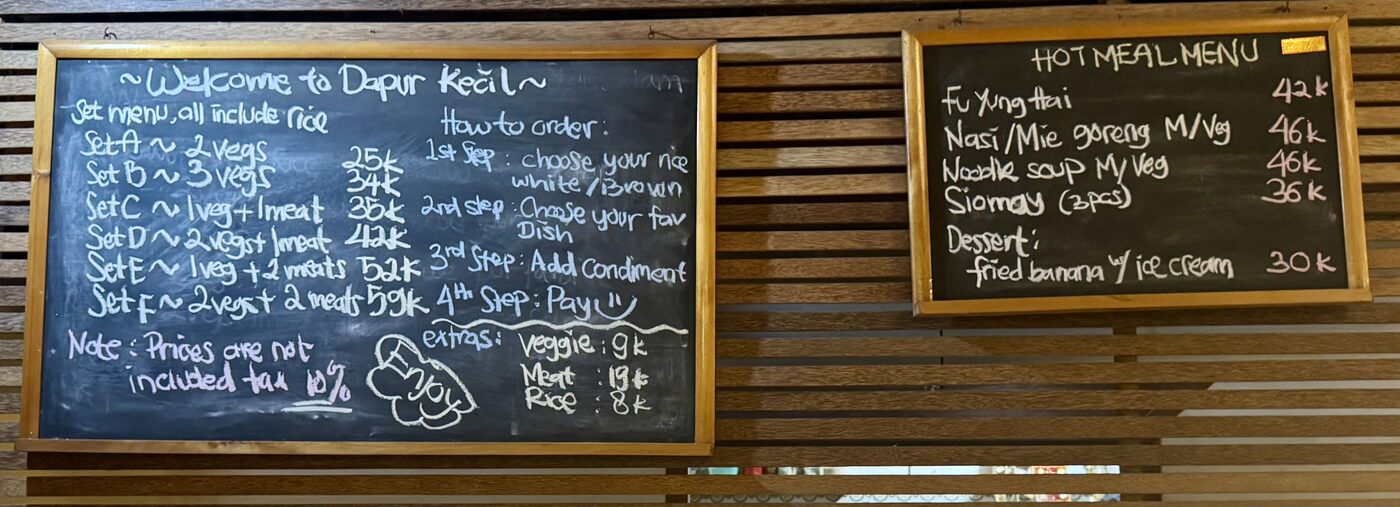 ~Welcome to Dapur Kecil~
Set menu, all include rice
Set A ~ 2 vegs 25k
Set B ~ 3 vegs 34k
Set C ~ 1 veg + 1 meat 35k
Set D ~ 2 vegs + 1 meat 42k
Set E ~ 1 veg + 2 meats 52k
Set F ~ 2 vegs + 2 meats 59k
Note : Prices are not
included tax 10%
Enjoy
How to order :
1st Step : choose your rice
white / Brown
2nd step : Choose your fav
Dish
3rd Step : Add Condiment
4th Step : Pay
extras : Veggie : 9k
Meat : 19k
Rice : 8k
HOT MEAL MENU
Fu Yung Hai 42k
Nasi/Mie goreng M/Veg 46k
Noodle soup M/Veg 46k
Siomay (3pcs) 36k
Dessert :
fried banana w/ ice cream 30k